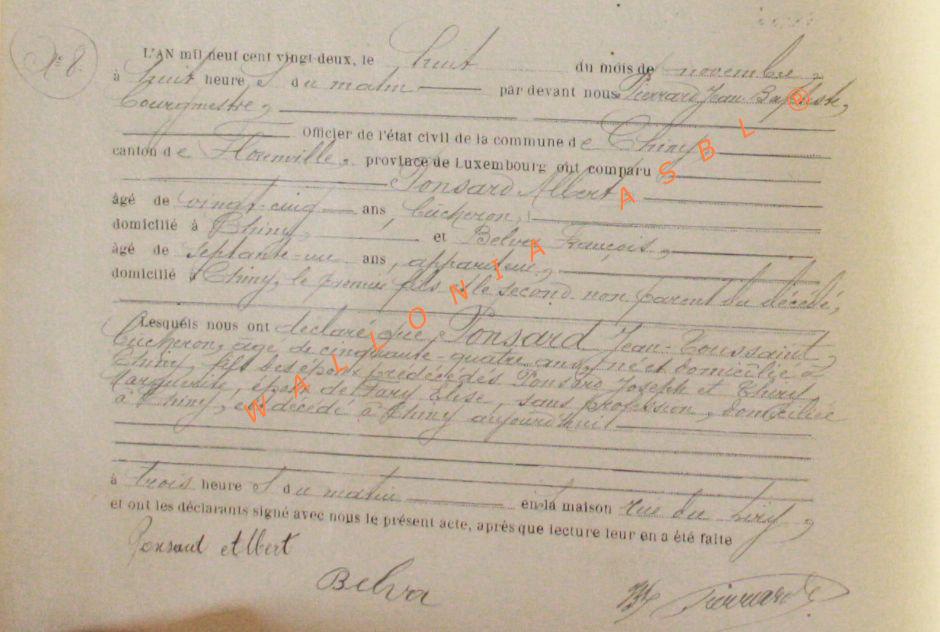 No 8.
L'AN mil neuf cent vingt-deux, le huit du mois de novembre,
à huit heures du matin par devant nous Pierrard Jean-Baptiste,
bourgmestre,
Officier de l'état civil de la commune de Chiny,
canton de Florenville, province de Luxembourg ont comparu
Ponsard Albert,
âgé de vingt-cinq ans, bûcheron,
domicilié à Chiny, et Belva François,
âgé de septante-un ans, appariteur,
domicilié à Chiny, le premier fils & le second non parent du décédé,
Lesquels nous ont déclaré que Ponsard Jean-Toussaint,
bûcheron, âgé de cinquante-quatre ans, né et domicilié à
Chiny, fils des époux prédécédés Ponsard Joseph et Thiry
Marguerite, époux de Fary Elise, sans profession, domiciliée
à Chiny, est décédé à Chiny aujourd'hui
à trois heures du matin en la maison rue du
et ont les déclarants signé avec nous le présent acte, après que lecture leur en a été faite
Ponsard Albert
Belva
Pierrard
WALLONIA ASBL ®